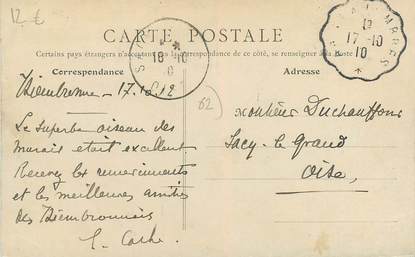 12 €
CARTE POSTALE
Certains pays étrangers n'acceptant pas la correspondance de ce côté, se renseigner à la Poste
Correspondance
Adresse
18-10
17-10
10
62
Thiembronne - 17.10.12
Le superbe oiseau des
marais était excellent
Recevez les remerciements
et les meilleures amitiés
des Thiembronnais
Monsieur Duchauffour
Sacy-le Grand
Oise,